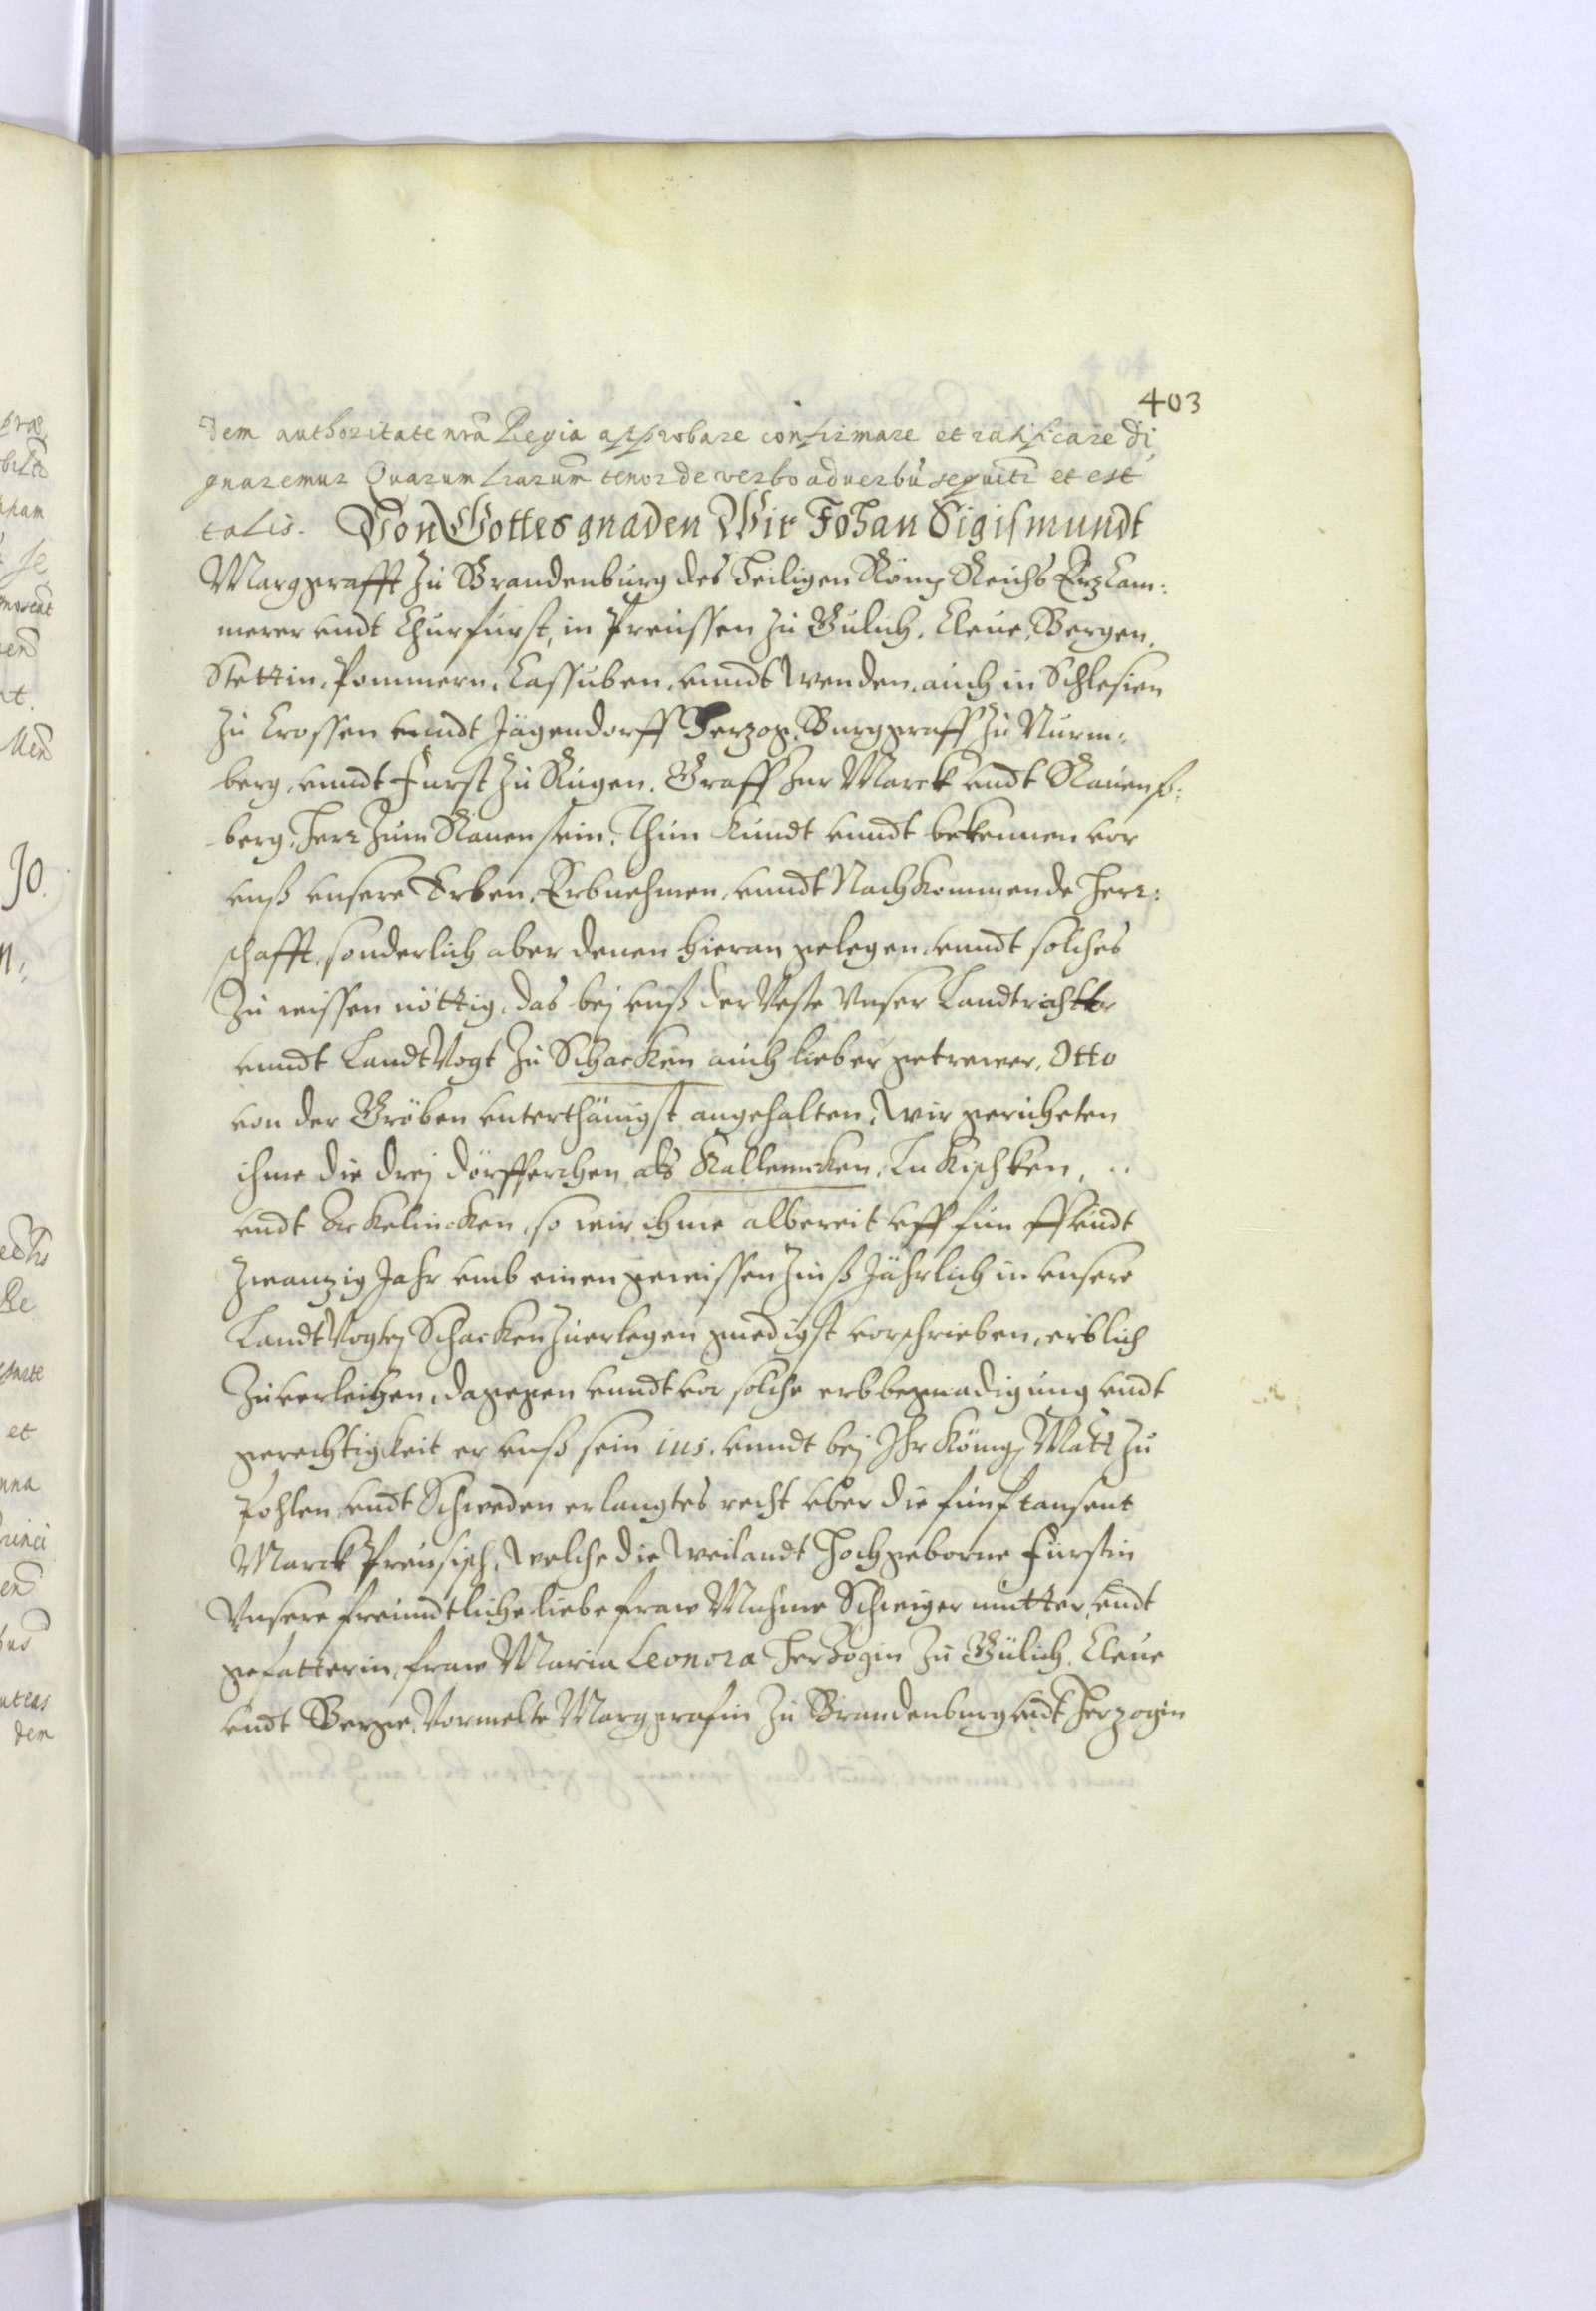 403
dem authoritate nrã Regia approbare confirmare et ratificare di
gnaremur Quarum lrarum tenor de verbo ad verbũ sequitr et est
talis. Von Gottes gnaden Wir Johan Sigismundt
Marggrafft zu Brandenburg des Heiligen Römg Reichs Ertzkam:
merer undt Churfurst, in Preussen zu Gulich, Cleue, Bergen,
Stettin, Pommern, Cassuben, unndt Wenden, auch in Schlesien
zu Crossen unndt Jägendorff Herzog, Burggraff zu Nurm:
berg, unndt Furst zu Rügen, Graff zur Marck undt Rauenß:
berg, Herr zum Rauenstein, Thun kundt unndt bekennen vor
unß unsere Erben, Erbnehmen, unndt Nachkommende Herr:
schafft, sonderlich aber denen hieran gelegen, unndt solches
zu wissen nöttig, das bej unß der Veste Unser Landtrichter
unndt LandtVogt zu Schacken auch lieber getrewer, Otto
von der Gröben unterthänigst angehalten, wir gericheten
ihme die drej dörfferchen als Kallenicken, Lukischken,
undt Urkelincken, so wir ihme albereit uff funffundt
zwantzig Jahr umb einen gewissen Zinß Jährlich in unsere
LandtVogtej Schacken zuerlegen gnedigst vorschrieben, erblich
zuuerleihen, dagegen unndt vor solche erbbegnadigung undt
gerechtigkeit er unß sein ius, unndt bej Ihr Köng Maĩtt zu
Pohlen undt Schweden erlangtes recht uber die funf tausent
Marck Preusisch, welche die weilandt Hochgeborne Fürstin
Unsere freundtliche liebe fraw Muhme Schwigermutter, undt
gefatterin, fraw Maria Leonora Herzogin zu Gülich, Cleue
undt Berge, Vormelte Marggrafin zu Brandenburg undt Herzogin